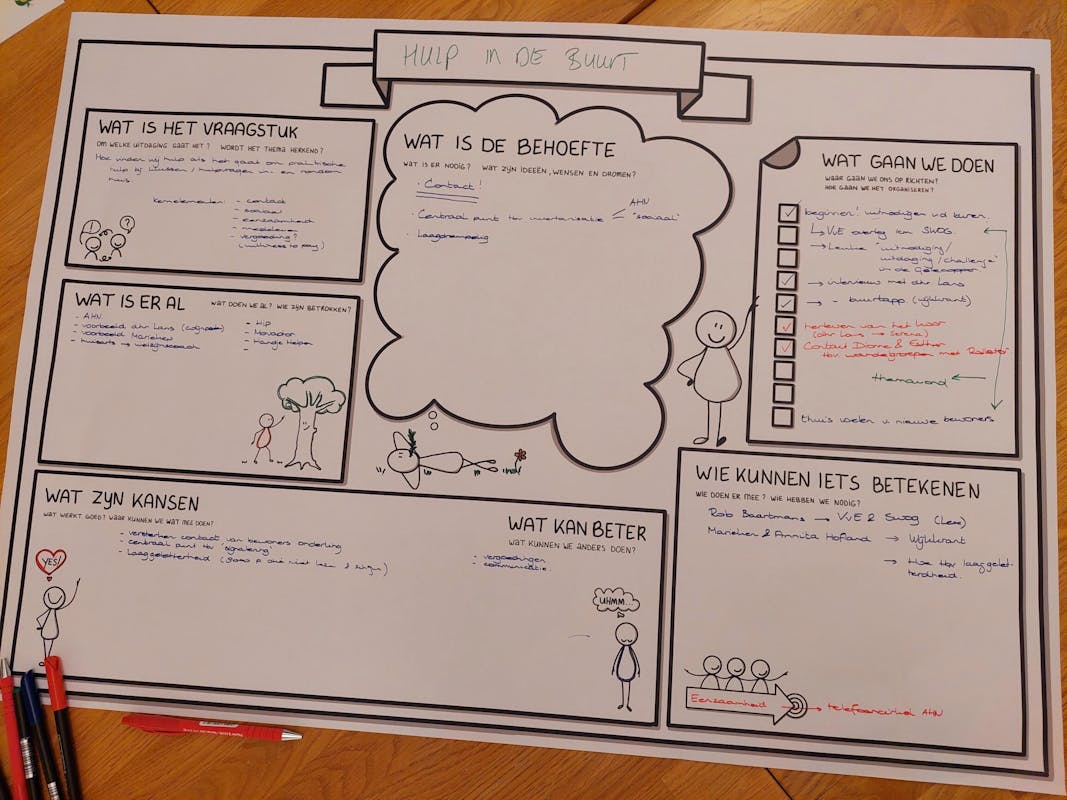 HULP IN DE BUURT
WAT IS HET VRAAGSTUK
OM WELKE UITDAGING GAAT HET? WORDT HET THEMA HERKEND?
Hoe vinden wij hulp als het gaat om praktische
hulp bij klussen / hulpvragen in en rondom
huis.
Kernelementen: - contact
- sociaal
- eenzaamheid
- meedelen
- vergoeding?
(witness to pay)
WAT IS ER AL
WAT DOEN WE AL? WIE ZIJN BETROKKEN?
- AHN
- voorbeeld dhr Lans
- voorbeeld Marieken
- huisarts → welzijnscoach
- HIP
- Movactor
- Handje Helpen
-
WAT IS DE BEHOEFTE
WAT IS ER NODIG? WAT ZIJN IDEEËN, WENSEN EN DROMEN?
· Contact!
· Centraal punt tbv inventarisatie
AHN
"sociaal"
· Laagdrempelig
WAT GAAN WE DOEN
WAAR GAAN WE ONS OP RICHTEN?
HOE GAAN WE HET ORGANISEREN?
beginnen! uitnodigen v d buren.
↳ VvE overleg icm SWOG.
→ Leuke "uitnodiging/
uitdaging/challenge"
in de
→ interview met dhr Lans
→ - buurtapp. (wijkkrant)
herleven van het koor
(dhr Lans → Serena)
Contact Dionne & Esther
tbv wandelgroepen met Rollator
themavond ←
thuis voelen v nieuwe bewoners
WAT ZIJN KANSEN
WAT WERKT GOED? WAAR KUNNEN WE WAT MEE DOEN?
- versterken contact van bewoners onderling
- centraal punt tbv 'signalering'
- Laaggeletterheid
YES!
WAT KAN BETER
WAT KUNNEN WE ANDERS DOEN?
- vergoedingen
- communicatie.
UHMM...
WIE KUNNEN IETS BETEKENEN
WIE DOEN ER MEE? WIE HEBBEN WE NODIG?
Rob Baartmans → VvE & Swog
Marieken & Annita Hofland → Wijkkrant
→ Hoe tbv laaggelet-
terdheid.
Eenzaamheid → telefooncirkel AHN